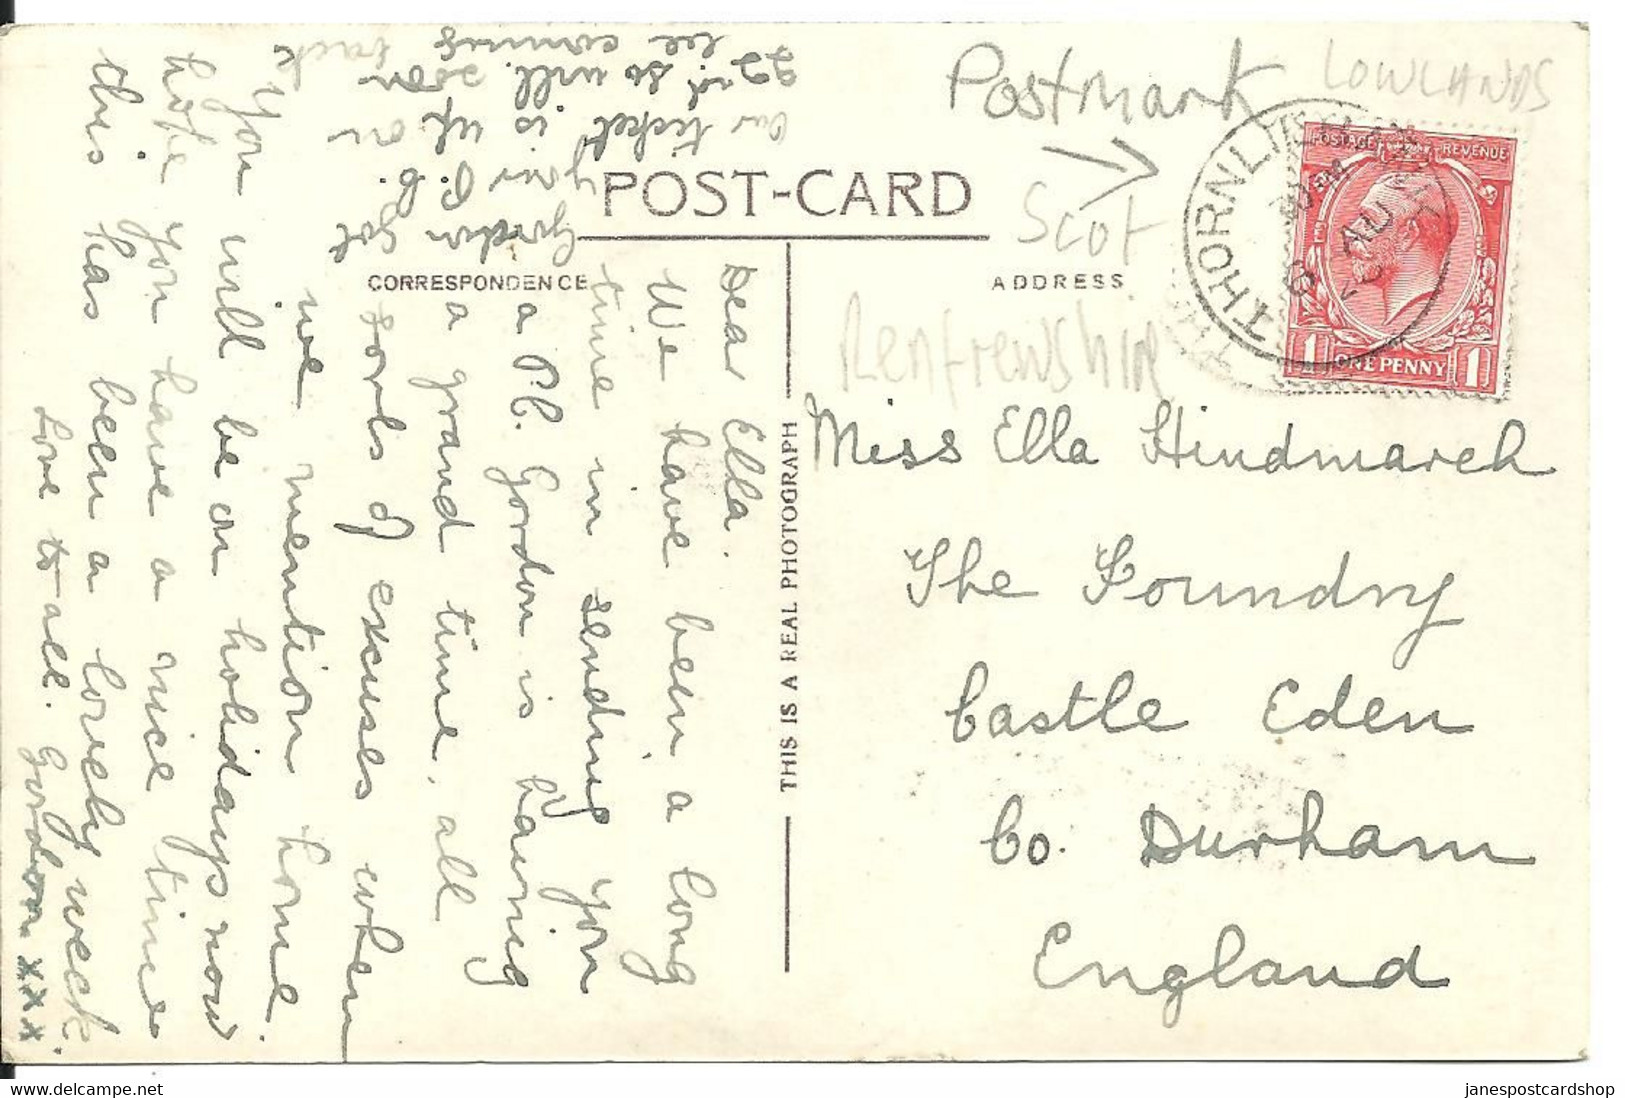 POST-CARD
CORRESPONDENCE
ADDRESS
THIS IS A REAL PHOTOGRAPH
Postmark
LOWLANDS
Scot
Renfrewshire
THORNLIEBANK
8 AU
POSTAGE REVENUE
1 ONE PENNY 1
Miss Ella Hindmarch
The Foundry
Castle Eden
Co. Durham
England
Dear Ella.
We have been a long
time in sending you
a P.C. Gordon is having
a grand time, all
sorts of excuses when
we mention home.
You will be on holidays now
hope you have a nice time
this has been a lovely week.
Love to all. Gordon xxx
Gordon got
your P.C.
our ticket is up on
22nd so will soon
be coming back
janespostcardshop